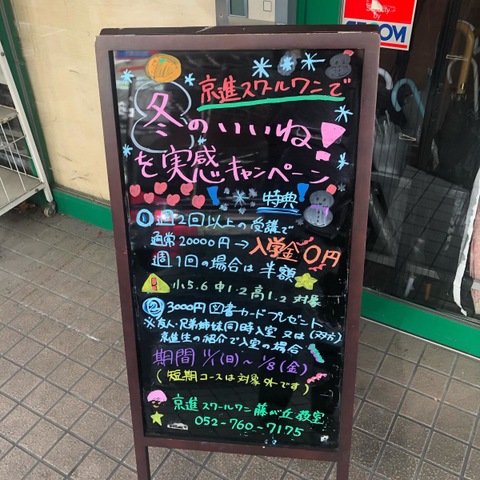 SECOM
京進スクールワンで
冬のいいね!
を実感キャンペーン
特典
① 週2回以上の受講で
通常20000円→入学金0円
週1回の場合は半額
! 小5.6 中1.2 高1.2 対象
② 3000円図書カードプレゼント
※友人・兄弟姉妹同時入室 又は(双方)
京進生の紹介で入室の場合
期間 11/1(日)~1/8(金)
(短期コースは対象外です)
京進スクールワン藤が丘教室
052-760-7175